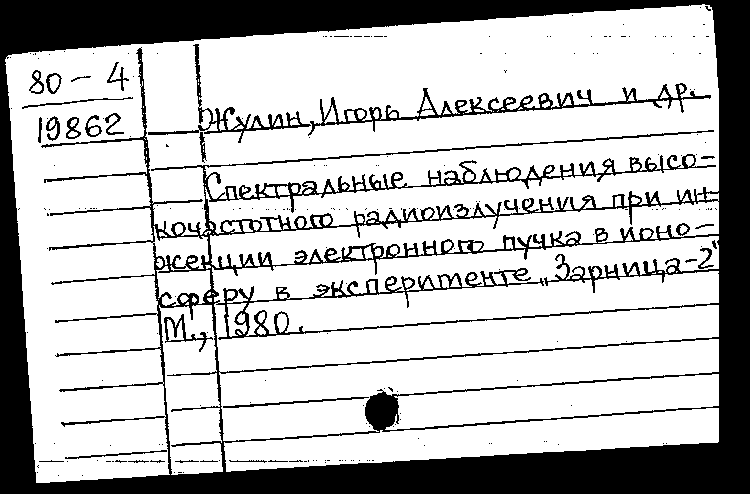 80-4
19862
Жулин, Игорь Алексеевич и др.
Спектральные наблюдения высо-
кочастотного радиоизлучения при ин-
жекции электронного пучка в ионо-
сферу в эксперименте „Зарница-2"
М., 1980.